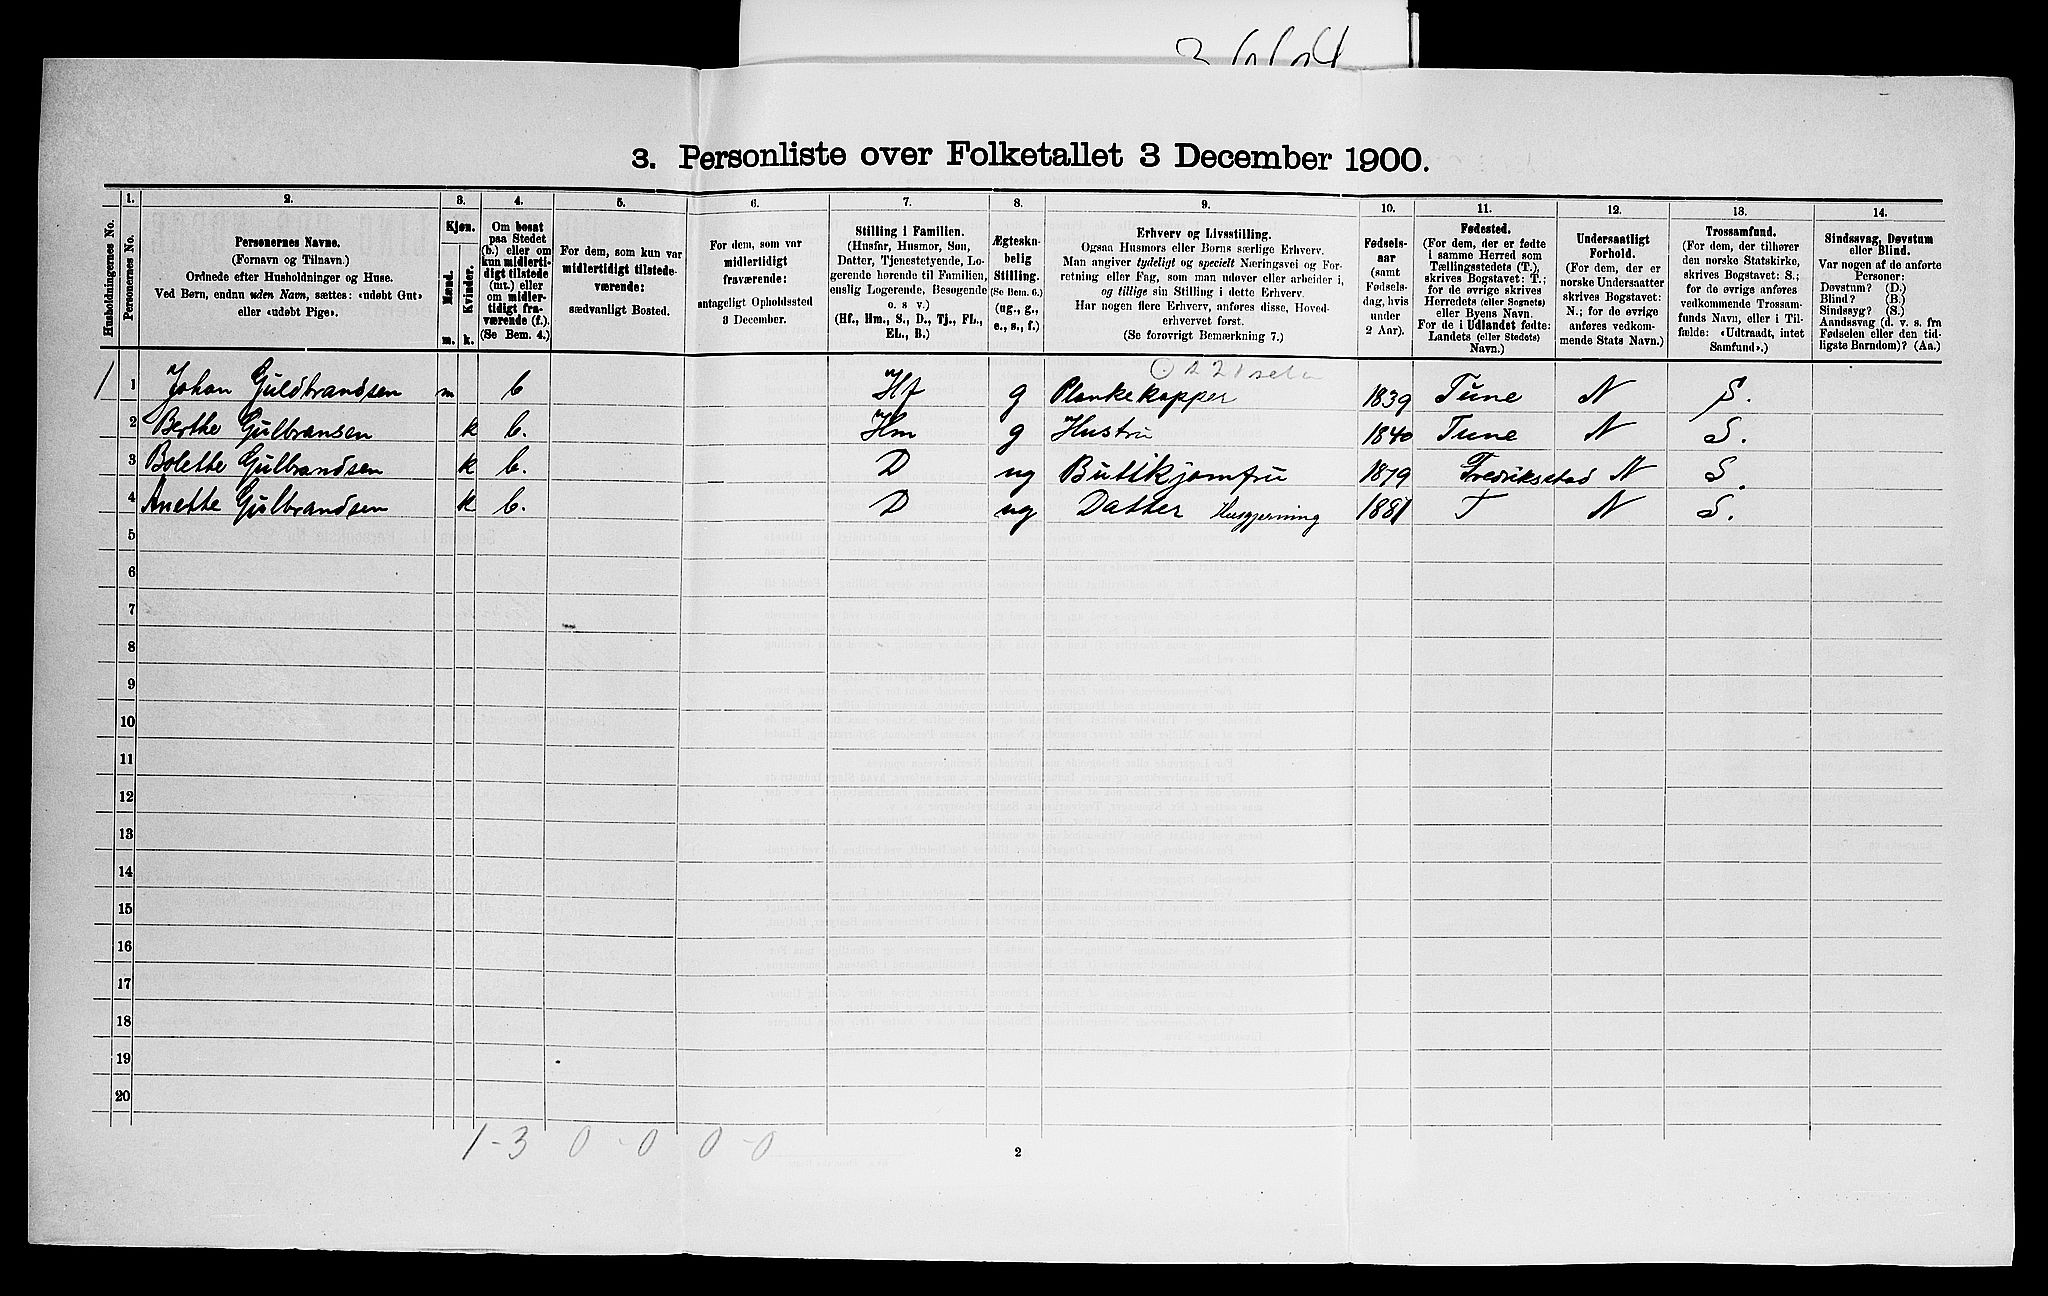 3. Personliste over Folketallet 3 December 1900.
Husholdningernes No.
1.
Personernes No.
2.
Personernes Navne.
(Fornavn og Tilnavn.)
Ordnede efter Husholdninger og Huse.
Ved Børn, endnu uden Navn, sættes: «udøbt Gut»
eller «udøbt Pige».
3.
Kjøn.
Mænd.
Kvinder.
m. k.
4.
Om bosat
paa Stedet
(b.) eller om
kun midlerti-
digt tilstede
(mt.) eller
om midler-
tidigt fra-
værende (f.).
(Se Bem. 4.)
5.
For dem, som kun var
midlertidigt tilstede-
værende:
sædvanligt Bosted.
6.
For dem, som var
midlertidigt
fraværende:
antageligt Opholdssted
3 December.
7.
Stilling i Familien.
(Husfar, Husmor, Søn,
Datter, Tjenestetyende, Lo-
gerende hørende til Familien,
enslig Logerende, Besøgende
o. s v.)
(Hf., Hm., S., D., Tj., FL.,
EL., B.)
8.
Ægteska-
belig
Stilling.
(Se Bem. 6.)
(ug., g.,
e., s., f.)
9.
Erhverv og Livsstilling.
Ogsaa Husmors eller Børns særlige Erhverv.
Man angiver tydeligt og specielt Næringsvei og For-
retning eller Fag, som man udøver eller arbeider i,
og tillige sin Stilling i dette Erhverv.
Har nogen flere Erhverv, anføres disse, Hoved-
erhvervet først.
(Se forøvrigt Bemærkning 7.)
10.
Fødsels-
aar
(samt
Fødsels-
dag, hvis
under
2 Aar).
11.
Fødested.
(For dem, der er fødte
i samme Herred som
Tællingsstedets (T.),
skrives Bogstavet: T.;
for de øvrige skrives
Herredets (eller Sognets)
eller Byens Navn.
For de i Udlandet fødte:
Landets (eller Stedets)
Navn.)
12.
Undersaatligt
Forhold.
(For dem, der er
norske Undersaatter
skrives Bogstavet:
N.; for de øvrige
anføres vedkom-
mende Stats Navn.)
13.
Trossamfund.
(For dem, der tilhører
den norske Statskirke,
skrives Bogstavet: S.;
for de øvrige anføres
vedkommende Trossam-
funds Navn, eller i Til-
fælde: «Udtraadt, intet
Samfund».)
14.
Sindssvag, Døvstum
eller Blind.
Var nogen af de anførte
Personer:
Døvstum? (D.)
Blind? (B.)
Sindssyg? (S.)
Aandssvag (d. v. s. fra
Fødselen eller den tid-
ligste Barndom)? (Aa.)
1 1 Johan Guldbrandsen m b Hf g Plankekapper 1839 Tune N S.
2 Berthe Gulbransen k b. Hm g Hustru 1840 Tune N S.
3 Bolette Gulbrandsen k b. D ug Butikjomfru 1879 Fredriksstad N S.
4 Anette Gulbrandsen k b. D ug Datter Husgjerning 1881 T N S.
5
6
7
8
9
10
11
12
13
14
15
16
17
18
19
20
1-3 0-0 0-0
2